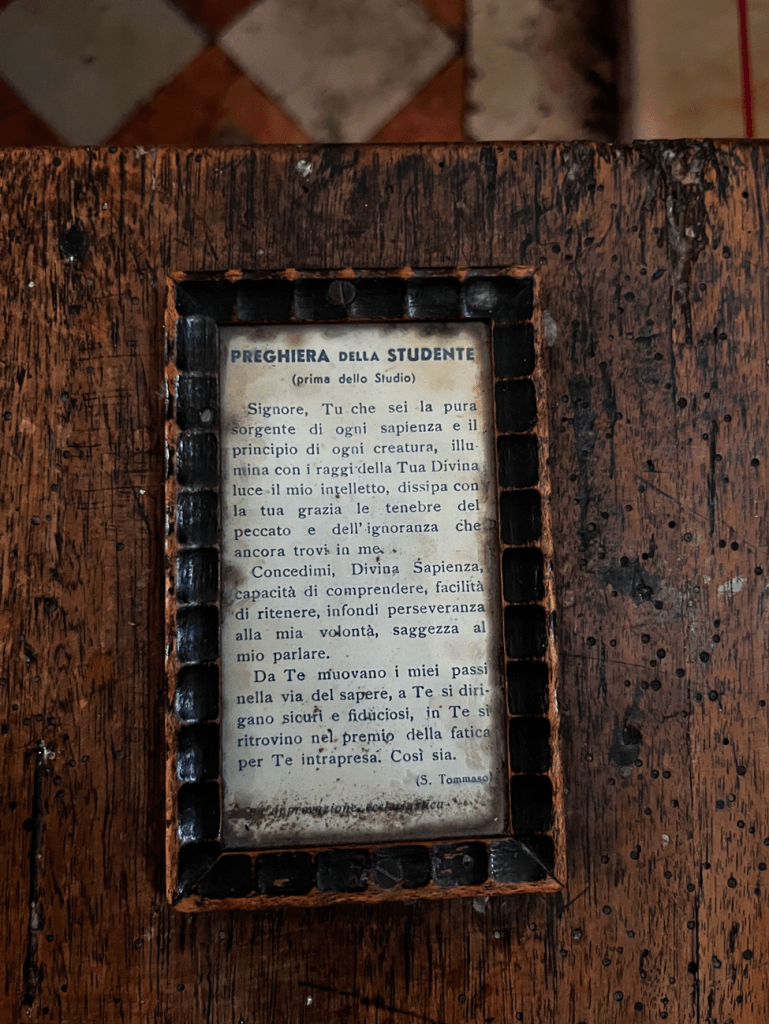 PREGHIERA DELLA STUDENTE
(prima dello Studio)
Signore, Tu che sei la pura
sorgente di ogni sapienza e il
principio di ogni creatura, illu-
mina con i raggi della Tua Divina
luce il mio intelletto, dissipa con
la tua grazia le tenebre del
peccato e dell'ignoranza che
ancora trovi in me.
Concedimi, Divina Sapienza,
capacità di comprendere, facilità
di ritenere, infondi perseveranza
alla mia volontà, saggezza al
mio parlare.
Da Te muovano i miei passi
nella via del sapere, a Te si diri-
gano sicuri e fiduciosi, in Te si
ritrovino nel premio della fatica
per Te intrapresa. Così sia.
(S. Tommaso)
approvazione ecclesiastica